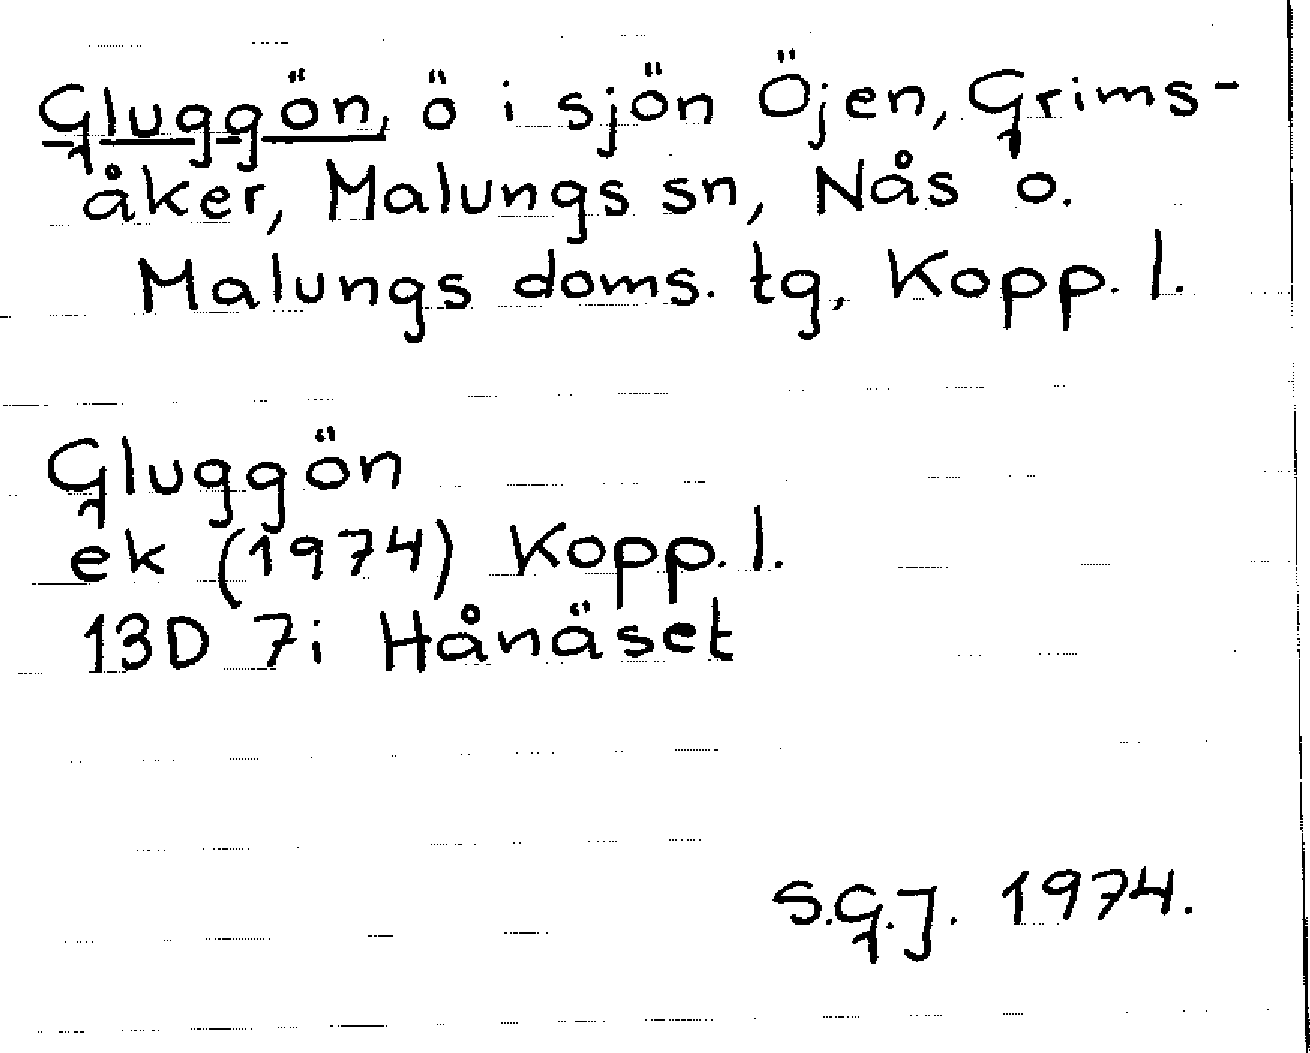 Gluggön, ö i sjön Öjen, Grims-
åker, Malungs sn, Nås o.
Malungs doms. tg, Kopp. l.
Gluggön
ek (1974) Kopp. l.
13D 7i Hånäset
S.G.J. 1974.